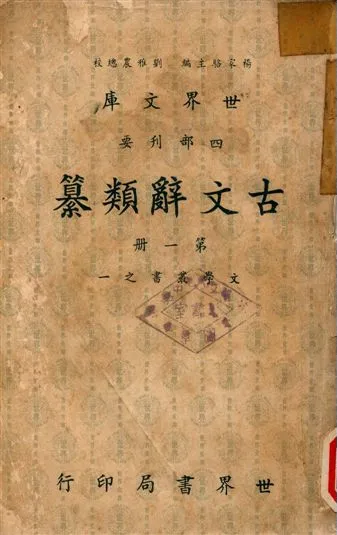 楊家駱主編　劉雅農總校
世界文庫
四部刊要
古文辭類纂
第一冊
文學叢書之一
世界書局印行